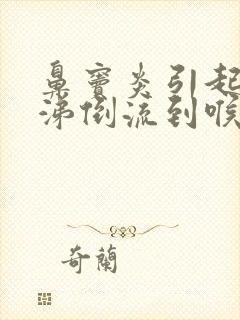 鼻竇炎引起
涕倒流到喉
奇蘭